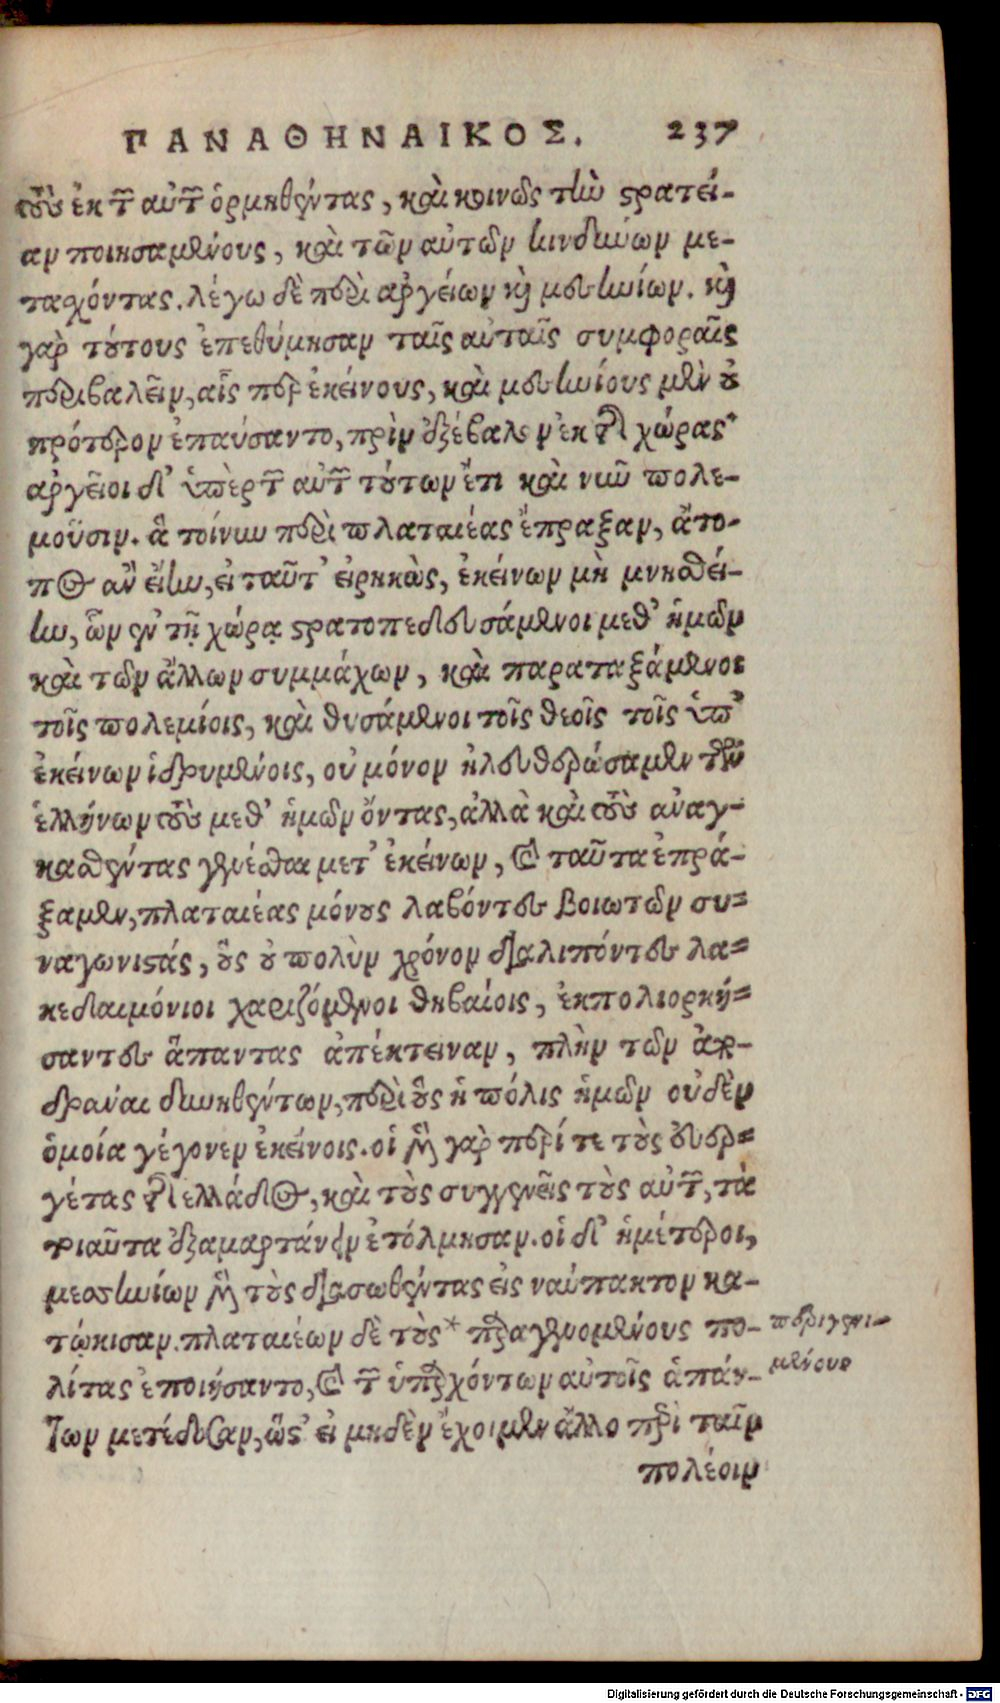 ΠΑΝΑΘΗΝΑΙΚΟΣ. 237
τοὺς ἐκ τῶν αὐτῶν ὁρμηθέντας, καὶ κοινῶς τὴν στρατεί-
αν ποιησαμένους, καὶ τῶν αὐτῶν κινδύνων με-
τασχόντας. λέγω δὲ περὶ ἀργείων καὶ μεσσηνίων. καὶ
γὰρ τούτους ἐπεθύμησαν ταῖς αὐταῖς συμφοραῖς
περιβαλεῖν, αἷς περ ἐκείνους, καὶ μεσσηνίους μὲν οὐ
πρότερον ἐπαύσαντο, πρὶν ἐξέβαλον ἐκ τῆς χώρας·
ἀργεῖοι δ' ὑπὲρ τῶν αὐτῶν τούτων ἔτι καὶ νῦν πολε-
μοῦσιν. ἃ τοίνυν περὶ πλαταιέας ἔπραξαν, ἄτο-
πος ἂν εἴην, εἰ ταῦτ' εἰρηκὼς, ἐκείνων μὴ μνησθεί-
ην, ὧν ἐν τῇ χώρᾳ στρατοπεδευσάμενοι μεθ' ἡμῶν
καὶ τῶν ἄλλων συμμάχων, καὶ παραταξάμενοι
τοῖς πολεμίοις, καὶ θυσάμενοι τοῖς θεοῖς τοῖς ὑπ'
ἐκείνων ἱδρυμένοις, οὐ μόνον ἠλευθερώσαμεν τῶν
ἑλλήνων τοὺς μεθ' ἡμῶν ὄντας, ἀλλὰ καὶ τοὺς ἀναγ-
κασθέντας γενέσθαι μετ' ἐκείνων, καὶ ταῦτα ἐπρά-
ξαμεν, πλαταιέας μόνους λαβόντες βοιωτῶν συ-
ναγωνιστάς, οὓς οὐ πολὺν χρόνον διαλιπόντες λα-
κεδαιμόνιοι χαριζόμενοι θηβαίοις, ἐκπολιορκή-
σαντες ἅπαντας ἀπέκτειναν, πλὴν τῶν ἀπο-
δρᾶναι δυνηθέντων, περὶ οὓς ἡ πόλις ἡμῶν οὐδὲν
ὁμοία γέγονεν ἐκείνοις. οἱ μὲν γὰρ περί τε τοὺς εὐερ-
γέτας τῆς ἑλλάδος, καὶ τοὺς συγγενεῖς τοὺς αὑτῶν, τὰ
τοιαῦτα ἐξαμαρτάνειν ἐτόλμησαν. οἱ δ' ἡμέτεροι,
μεσσηνίων μὲν τοὺς διασωθέντας εἰς ναύπακτον κα-
τῴκισαν. πλαταιέων δὲ τοὺς * παραγενομένους πο-
λίτας ἐποιήσαντο, καὶ τῶν ὑπαρχόντων αὐτοῖς ἁπάν-
των μετέδοσαν, ὥστ' εἰ μηδὲν ἔχοιμεν ἄλλο περὶ ταῖν
πολέοιν
περιγενο-
μένους
Digitalisierung gefördert durch die Deutsche Forschungsgemeinschaft - DFG